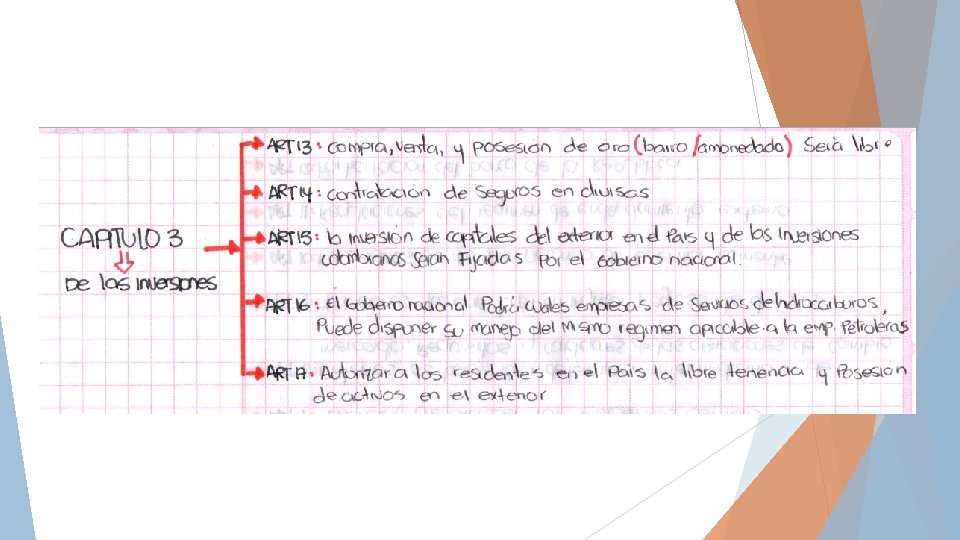 ART 13: compra, venta, y posesión de oro (barro/amonedado) Será libre
ART 14: contratación de Seguros en divisas
CAPITULO 3
De las inversiones
ART 15: la inversión de capitales del exterior en el Pais y de las Inversiones
colombianas Serán Fijadas por el Gobierno nacional.
ART 16: El Gobierno nacional Podrá cuales empresas de Servicios de hidrocarburos,
Puede disponer su manejo del mismo regimen apicable a la emp. Petroleras
ART 17: Autorizar a los residentes en el País la libre tenencia y Posesión
de activos en el exterior